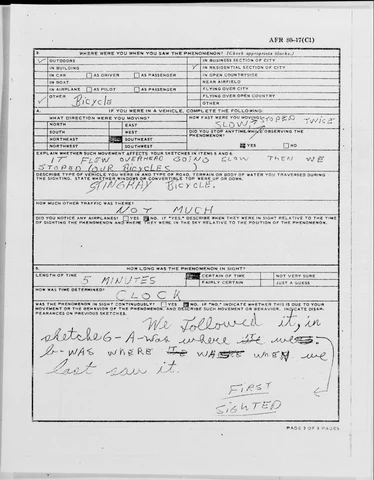 AFR 80-17(C1)
3. WHERE WERE YOU WHEN YOU SAW THE PHENOMENON? (Check appropriate blocks.)
✓ OUTDOORS IN BUSINESS SECTION OF CITY
IN BUILDING ✓ IN RESIDENTIAL SECTION OF CITY
IN CAR AS DRIVER AS PASSENGER IN OPEN COUNTRYSIDE
IN BOAT NEAR AIRFIELD
IN AIRPLANE AS PILOT AS PASSENGER FLYING OVER CITY
✓ OTHER Bicycle FLYING OVER OPEN COUNTRY
OTHER
A. IF YOU WERE IN A VEHICLE, COMPLETE THE FOLLOWING:
WHAT DIRECTION WERE YOU MOVING? HOW FAST WERE YOU MOVING?
NORTH EAST SLOW, STOPED TWICE
SOUTH WEST DID YOU STOP ANYTIME WHILE OBSERVING THE PHENOMENON?
NORTHEAST SOUTHEAST
NORTHWEST SOUTHWEST YES NO
EXPLAIN WHETHER SUCH MOVEMENT AFFECTS YOUR SKETCHES IN ITEMS 5 & 6.
IT FLEW OVERHEAD GOING SLOW THEN WE
STOPED OUR BICYCLES
DESCRIBE TYPE OF VEHICLE YOU WERE IN AND TYPE OF ROAD, TERRAIN OR BODY OF WATER YOU TRAVERSED DURING
THE SIGHTING. STATE WHETHER WINDOWS OR CONVERTIBLE TOP WERE UP OR DOWN.
STINGRAY BICYCLE.
HOW MUCH OTHER TRAFFIC WAS THERE?
NOT MUCH
DID YOU NOTICE ANY AIRPLANES? YES NO. IF "YES," DESCRIBE WHEN THEY WERE IN SIGHT RELATIVE TO THE TIME
OF SIGHTING THE PHENOMENON AND WHERE THEY WERE IN THE SKY RELATIVE TO THE POSITION OF THE PHENOMENON.
HOW LONG WAS THE PHENOMENON IN SIGHT?
LENGTH OF TIME 5 MINUTES CERTAIN OF TIME NOT VERY SURE
FAIRLY CERTAIN JUST A GUESS
HOW WAS TIME DETERMINED?
CLOCK
WAS THE PHENOMENON IN SIGHT CONTINUOUSLY? YES NO. IF "NO," INDICATE WHETHER THIS IS DUE TO YOUR
MOVEMENT OR THE BEHAVIOR OF THE PHENOMENON, AND DESCRIBE SUCH MOVEMENT OR BEHAVIOR. INDICATE DISAP-
PEARANCES ON PREVIOUS SKETCHES.
We followed it, in
sketche 6 - A-Was where we
b-WAS WHERE WAS WHEN we
last saw it.
FIRST
SIGHTED
PAGE 3 OF 5 PAGES